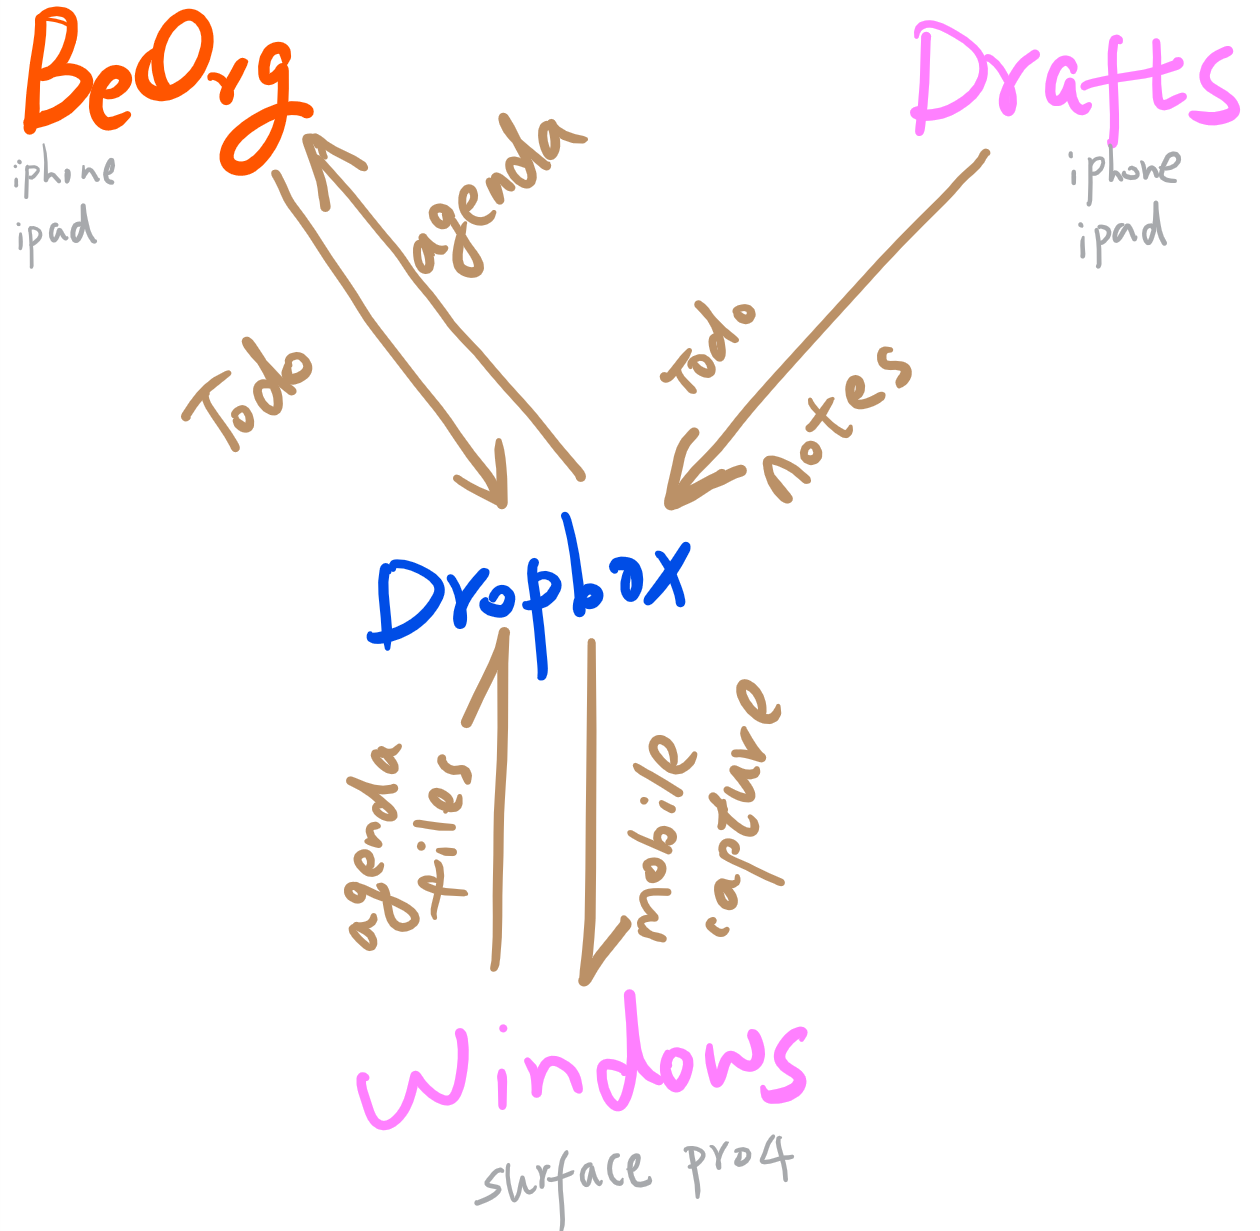 BeOrg
iphone
ipad
Drafts
iphone
ipad
agenda
Todo
Todo
notes
Dropbox
agenda
files
mobile
capture
Windows
surface pro4